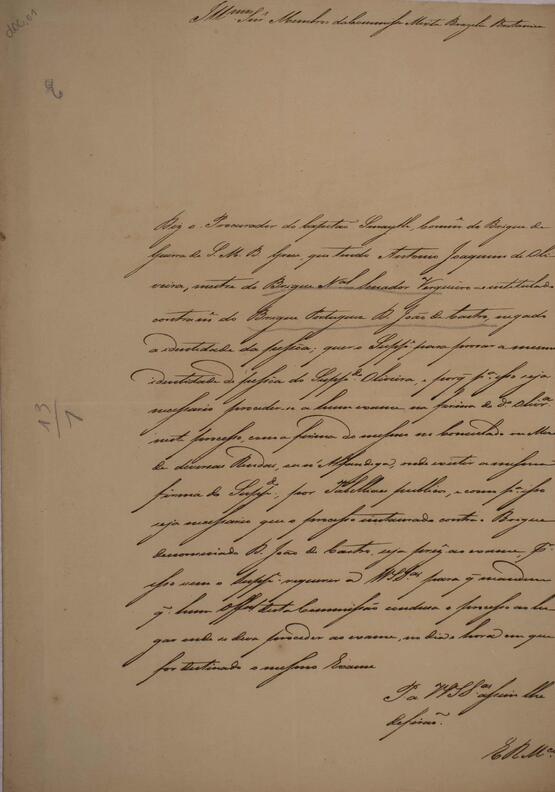 doc. 01
Illmos Snrs Membros da Commissão Mixta Brazila Britanica
2
13/7
Diz o Procurador do Capitão Smyth, Comme do Brigue de
Guerra de S. M. B. Grecian, que tendo Antonio Joaquim de Oli
veira, mestre do Brigue Nal Senador Vergueiro
contra do Brigue Portuguez D. João de Castro, negado
a identidade da pessoa; quer o Suppe para provar a mesma
identidade de pessoa do Suppdo Oliveira, e porq pa isso seja
necessario proceder-se a hum exame na firma do do Olivra
neste processo, com a firma do mesmo no Consulado ou Mesa
de diversas Rendas, ou n'Alfandega, onde existir a mesma
firma do Suppdo, por Tabelliaes publicos, e como pa isso
seja necessario que o processo instaurado contra o Brigue
denominado D. João de Castro, seja prezte ao exame, Pr
isso vem o Suppe requerer a VSSas para q mandem
q hum Offal desta Commissão conduza o processo ao lu
gar onde se deva proceder ao exame, no dia e hora em que
for destinado o mesmo Exame
Pa VSSas assim lhe
defirão.
E R Mce